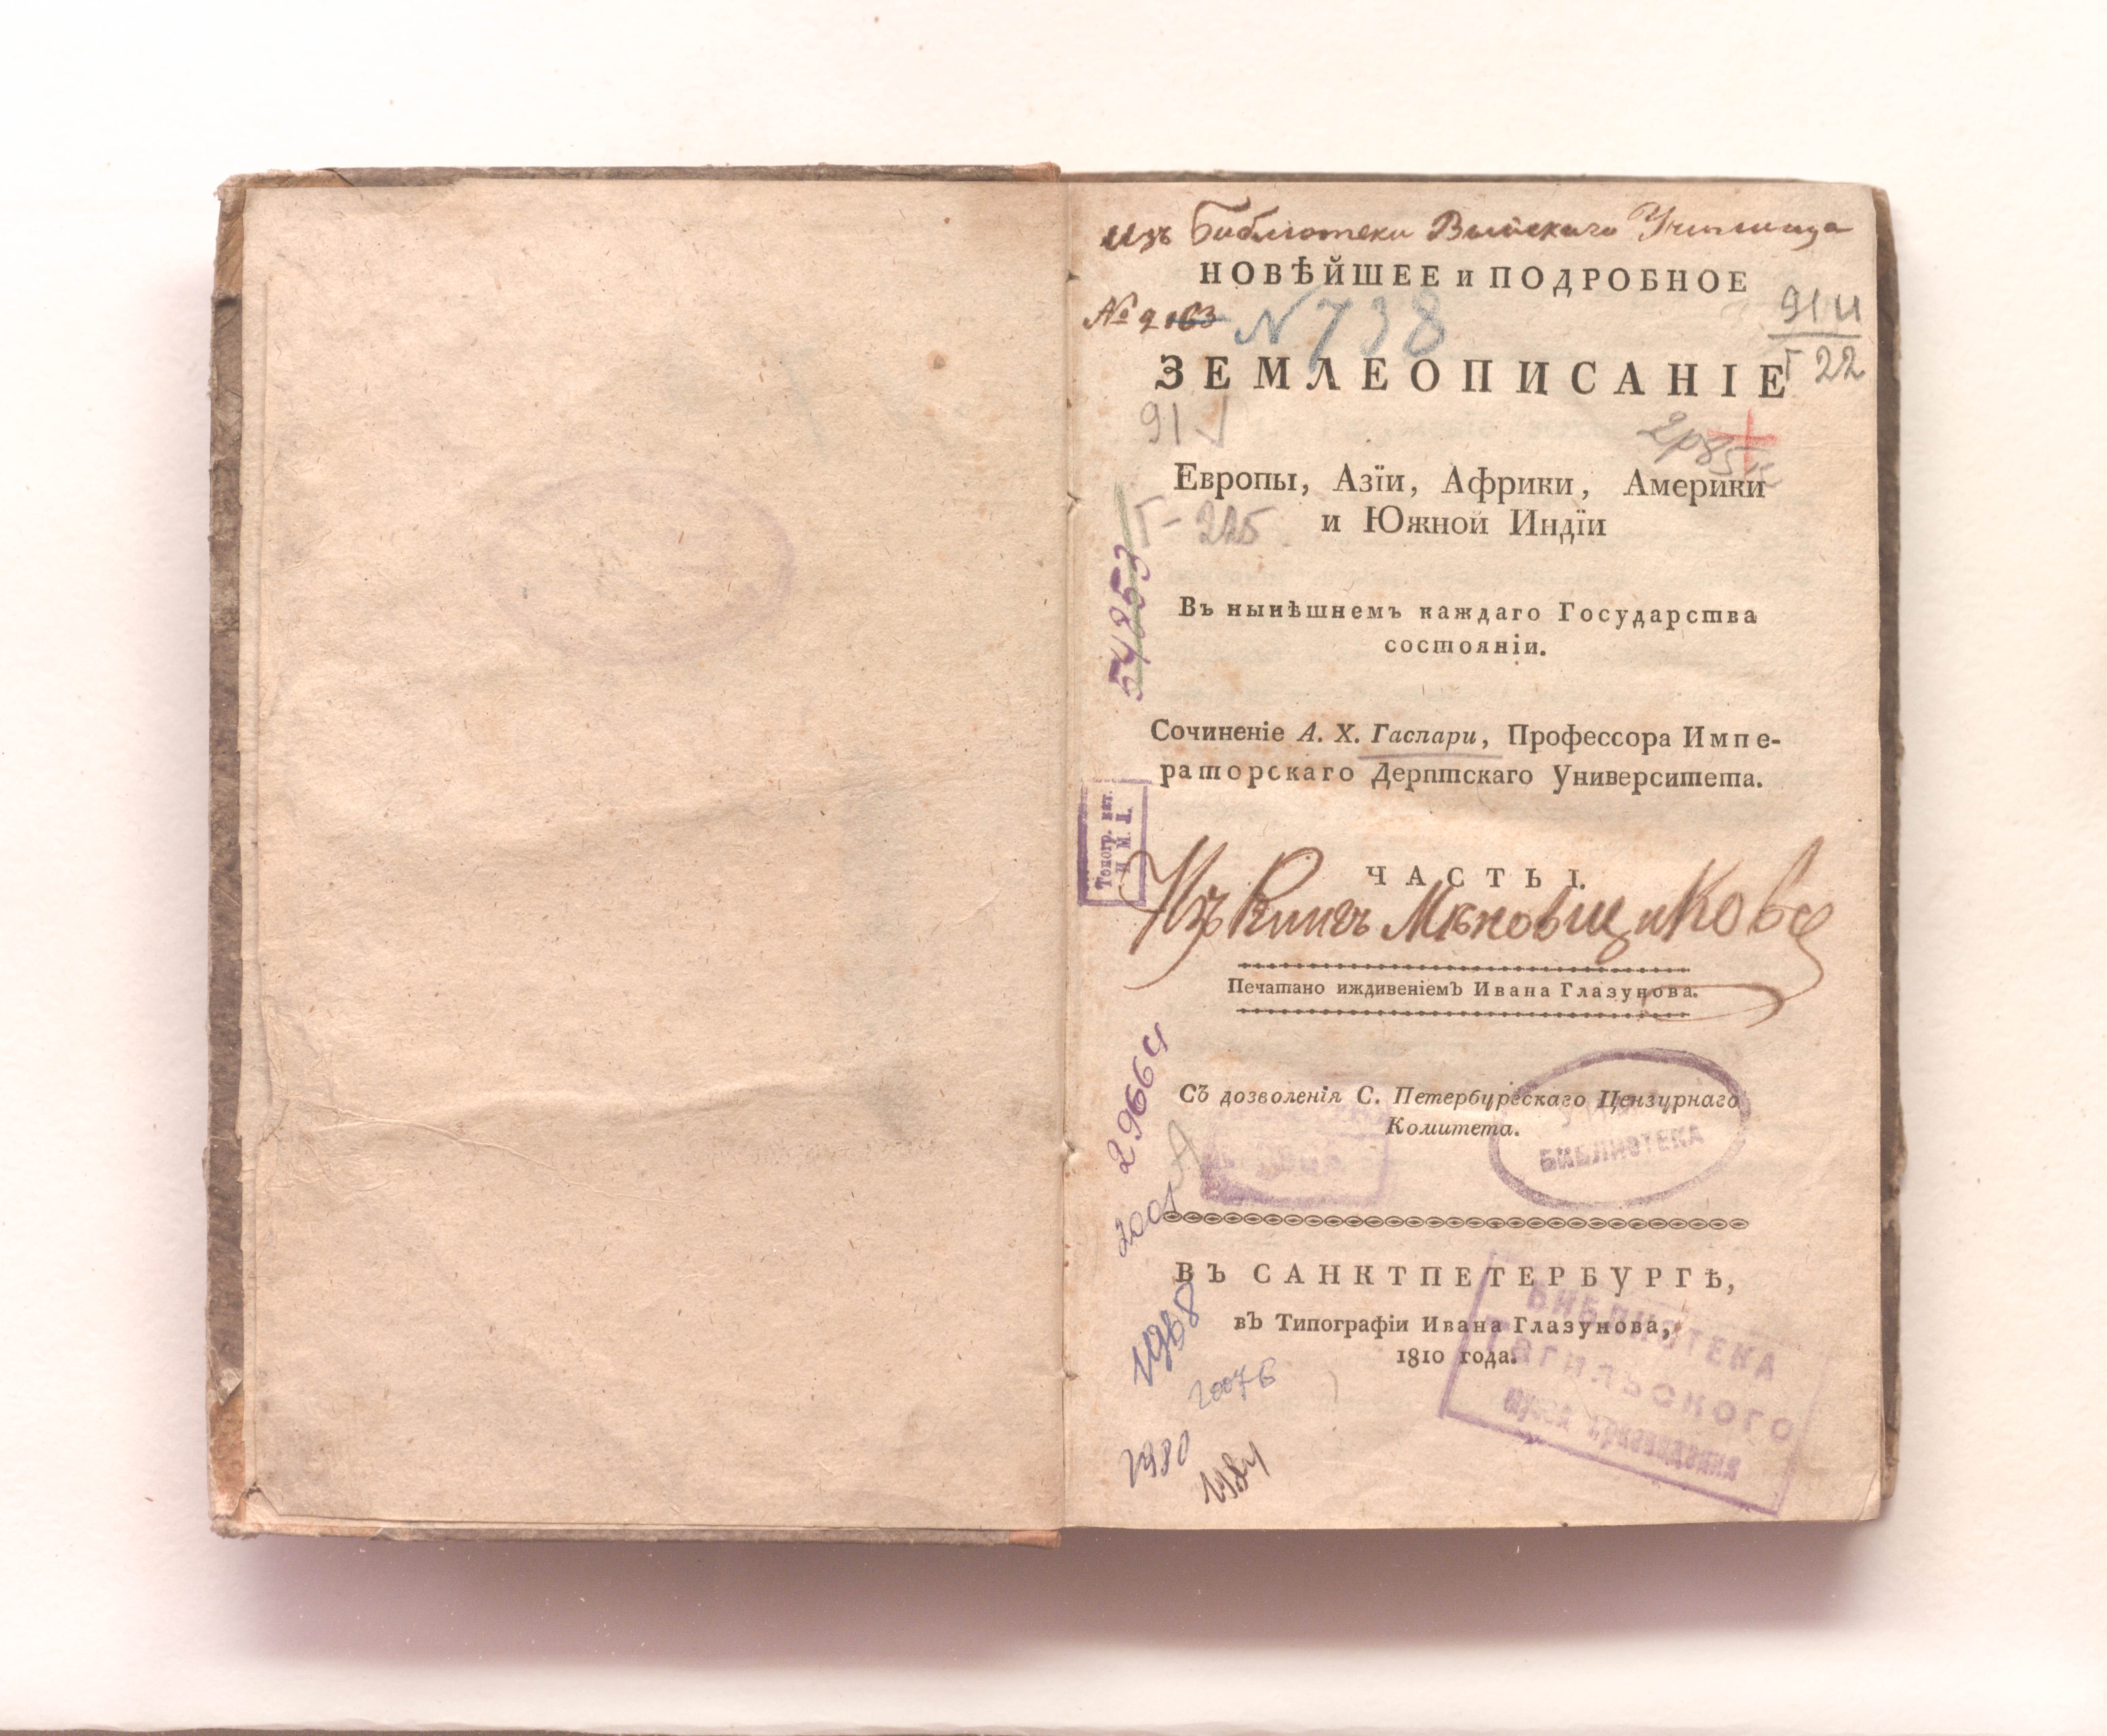 Изъ Библіотеки Выйскаго Училища
НОВѢЙШЕЕ и ПОДРОБНОЕ
№ 2163
N 738
91И
Г 22
ЗЕМЛЕОПИСАНІЕ
91
2р85
Европы, Азїи, Африки, Америки
Г-225
и Южной Индїи
54853
Въ нынѣшнемъ каждаго Государства
состоянїи.
Сочиненіе А. Х. Гаспари, Профессора Импе-
раторскаго Дерптскаго Университета.
Топогр. кат.
Н. М. А.
ЧАСТЬ I.
Изъ Книгъ Меновщикова
Печатано иждивеніемъ Ивана Глазунова.
29664
Съ дозволенія С. Петербургскаго Цензурнаго
Комитета.
БИБЛИОТЕКА
2001
ВЪ САНКТПЕТЕРБУРГѢ,
въ Типографіи Ивана Глазунова,
1810 года.
БИБЛИОТЕКА
Тагильского
музея краеведения
1968
2007Б
1980
1984